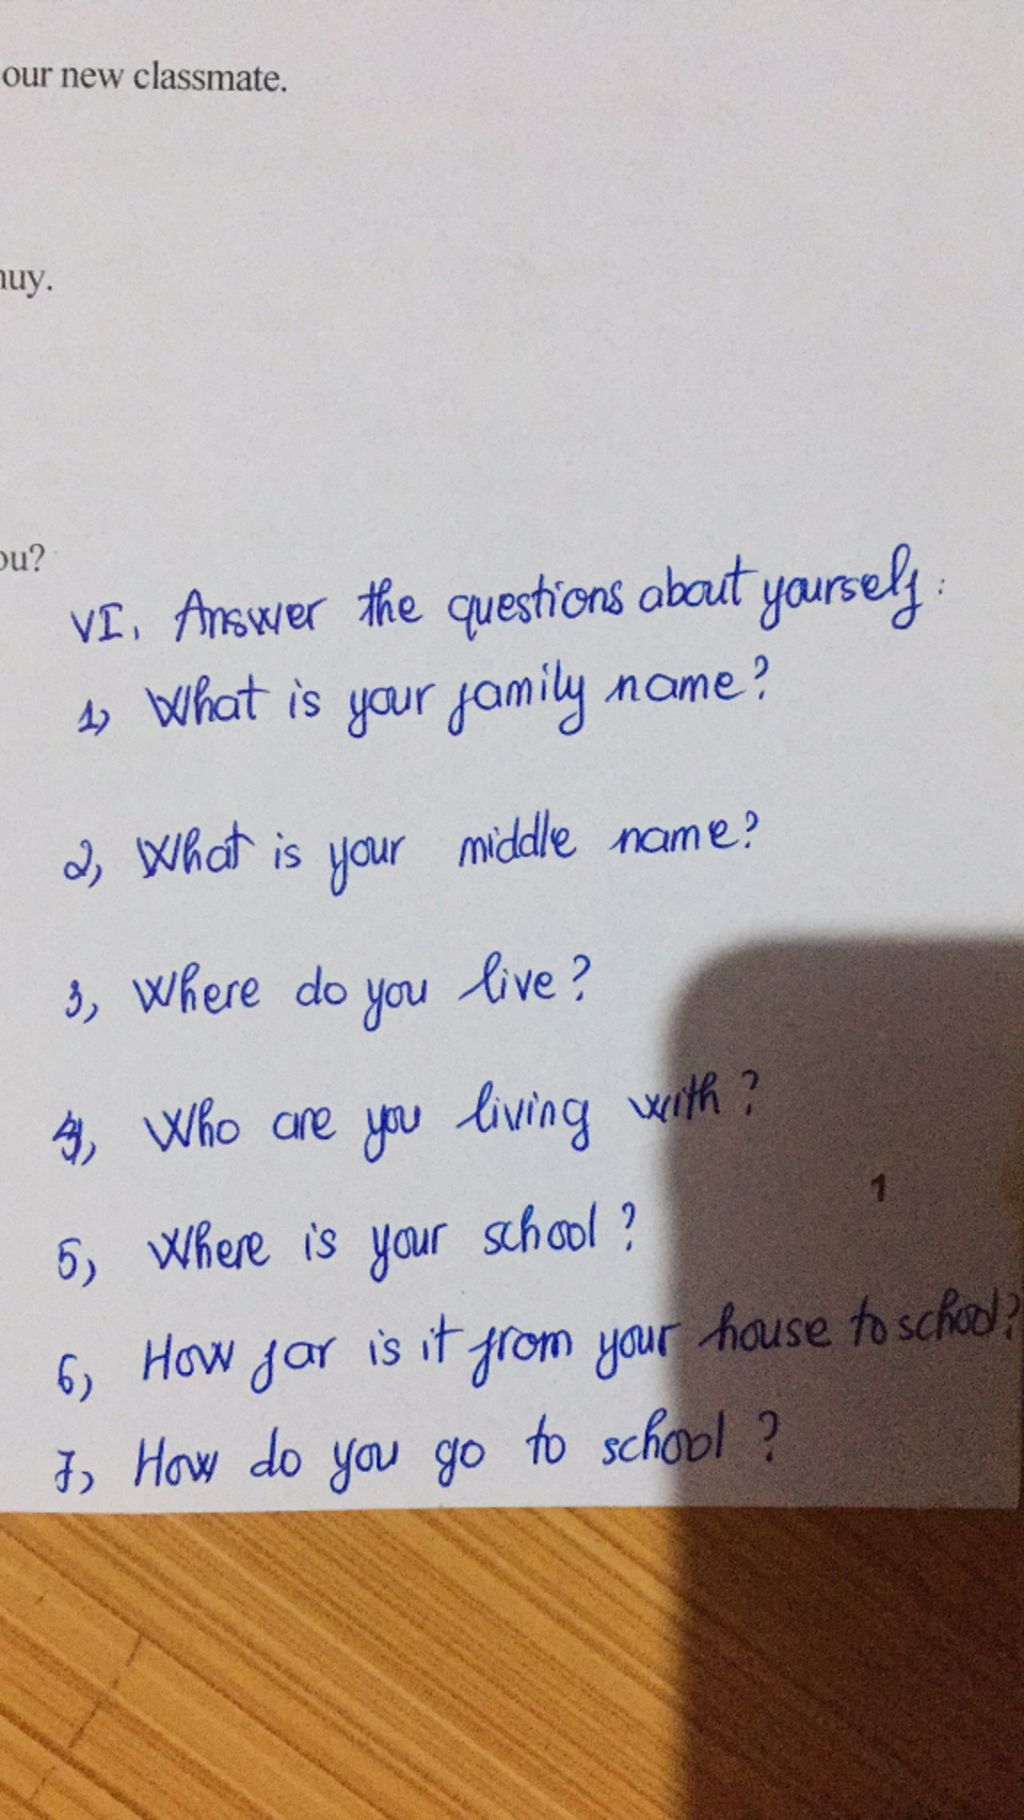 our new classmate.
huy.
ou?
VI. Answer the questions about yourself:
1, What is your family name?
2, What is your middle name?
3, Where do you live?
4, Who are you living with?
1
5, Where is your school?
6, How far is it from your house to school?
7, How do you go to school?